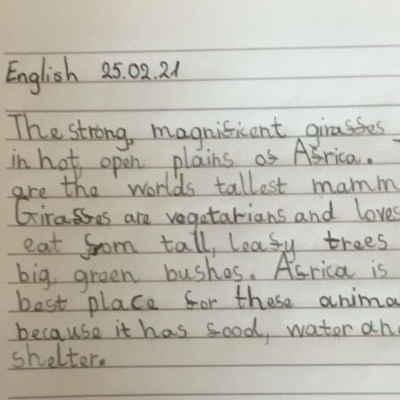 English 25.02.21
The strong, magnificent giraffes
in hot, open plains of Africa.
are the worlds tallest
Giraffes are vegetarians and loves
eat from tall, leafy trees
big, green bushes. Africa is
best place for these
because it has food, water
shelter.